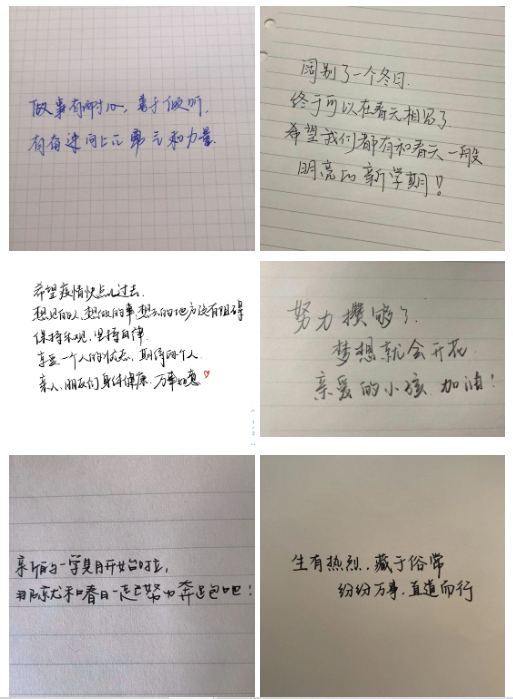 做事有耐心,善于倾听,
有奋进向上的勇气和力量
阔别了一个冬日
终于可以在春天相见了
希望我们都有和春天一般
明亮的新学期!!
希望疫情快点儿过去,
想见的人,想做的事,想去的地方没有阻碍
保持乐观,坚持自律
享受一个人的状态,期待的个人
亲人、朋友们身体健康,万事如意
努力攒够了,
梦想就会开花
亲爱的小孩,加油!
亲爱的学期开始啦,
那就和春日一起努力奔跑吧!
生有热烈,藏于俗常
纷纷万事,直道而行